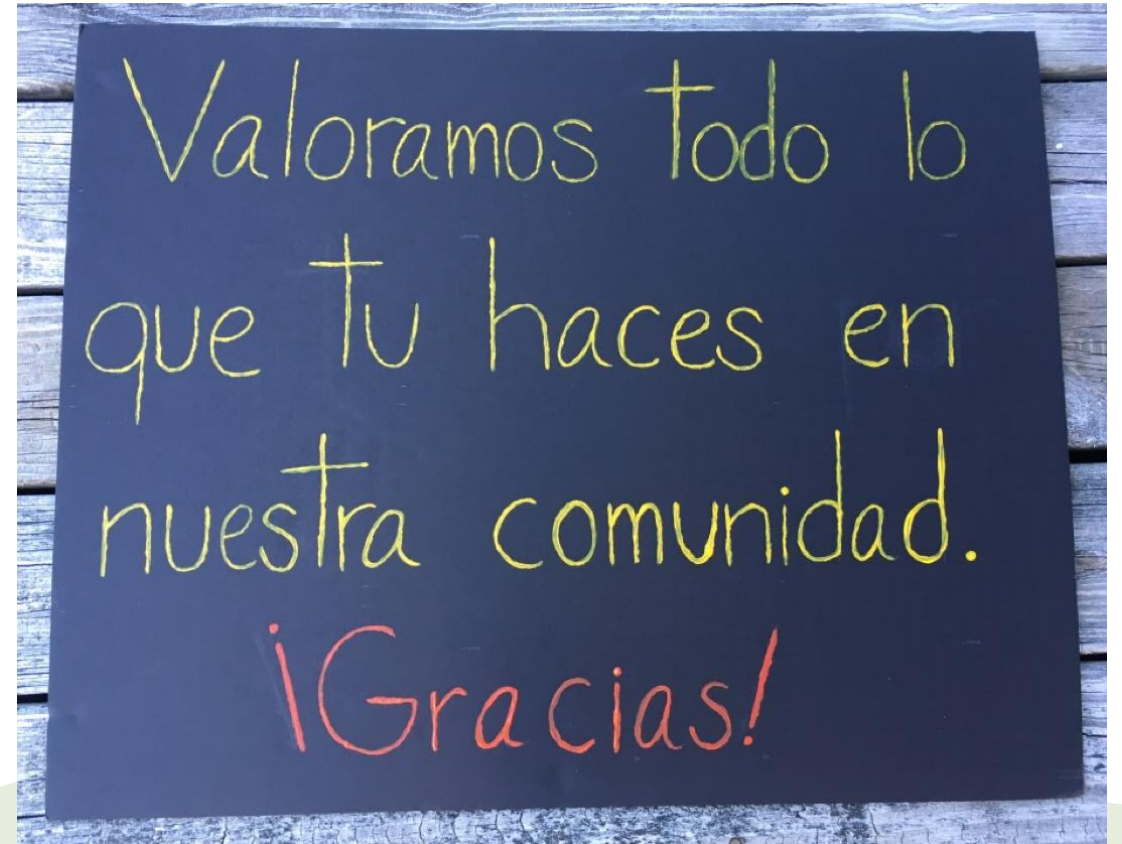 Valoramos todo lo
que tu haces en
nuestra comunidad.
¡Gracias!